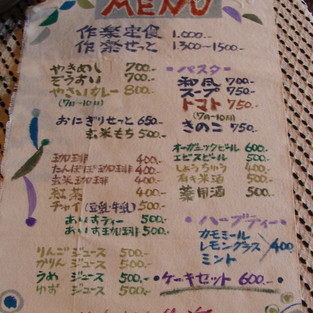 MENU
作楽定食 1,000.-
作楽せっと 1300~1500.-
やきめし 700.-
ぞうすい 700.-
やさいカレー 800.-
(7月~10月)
おにぎりせっと 650.-
玄米もち 500.-
珈琲 400.-
たんぽぽ珈琲 400.-
玄米珈琲 400.-
紅茶 400.-
チャイ(豆乳・牛乳) 500.-
あいすティー 500.-
あいす珈琲 500.-
りんごジュース 500.-
かりんジュース 500.-
うめジュース 500.-
ゆずジュース 500.-
・パスタ・
和風 700.-
スープ 750.-
トマト 750.-
(7月~10月)
きのこ 750.-
オーガニックビール 600.-
エビスビール 500.-
しょうちゅう 400.-
有機米酒 500.-
薬用酒 500.-
・ハーブティー・
カモミール
レモングラス 400.-
ミント
・ケーキセット 600.-・